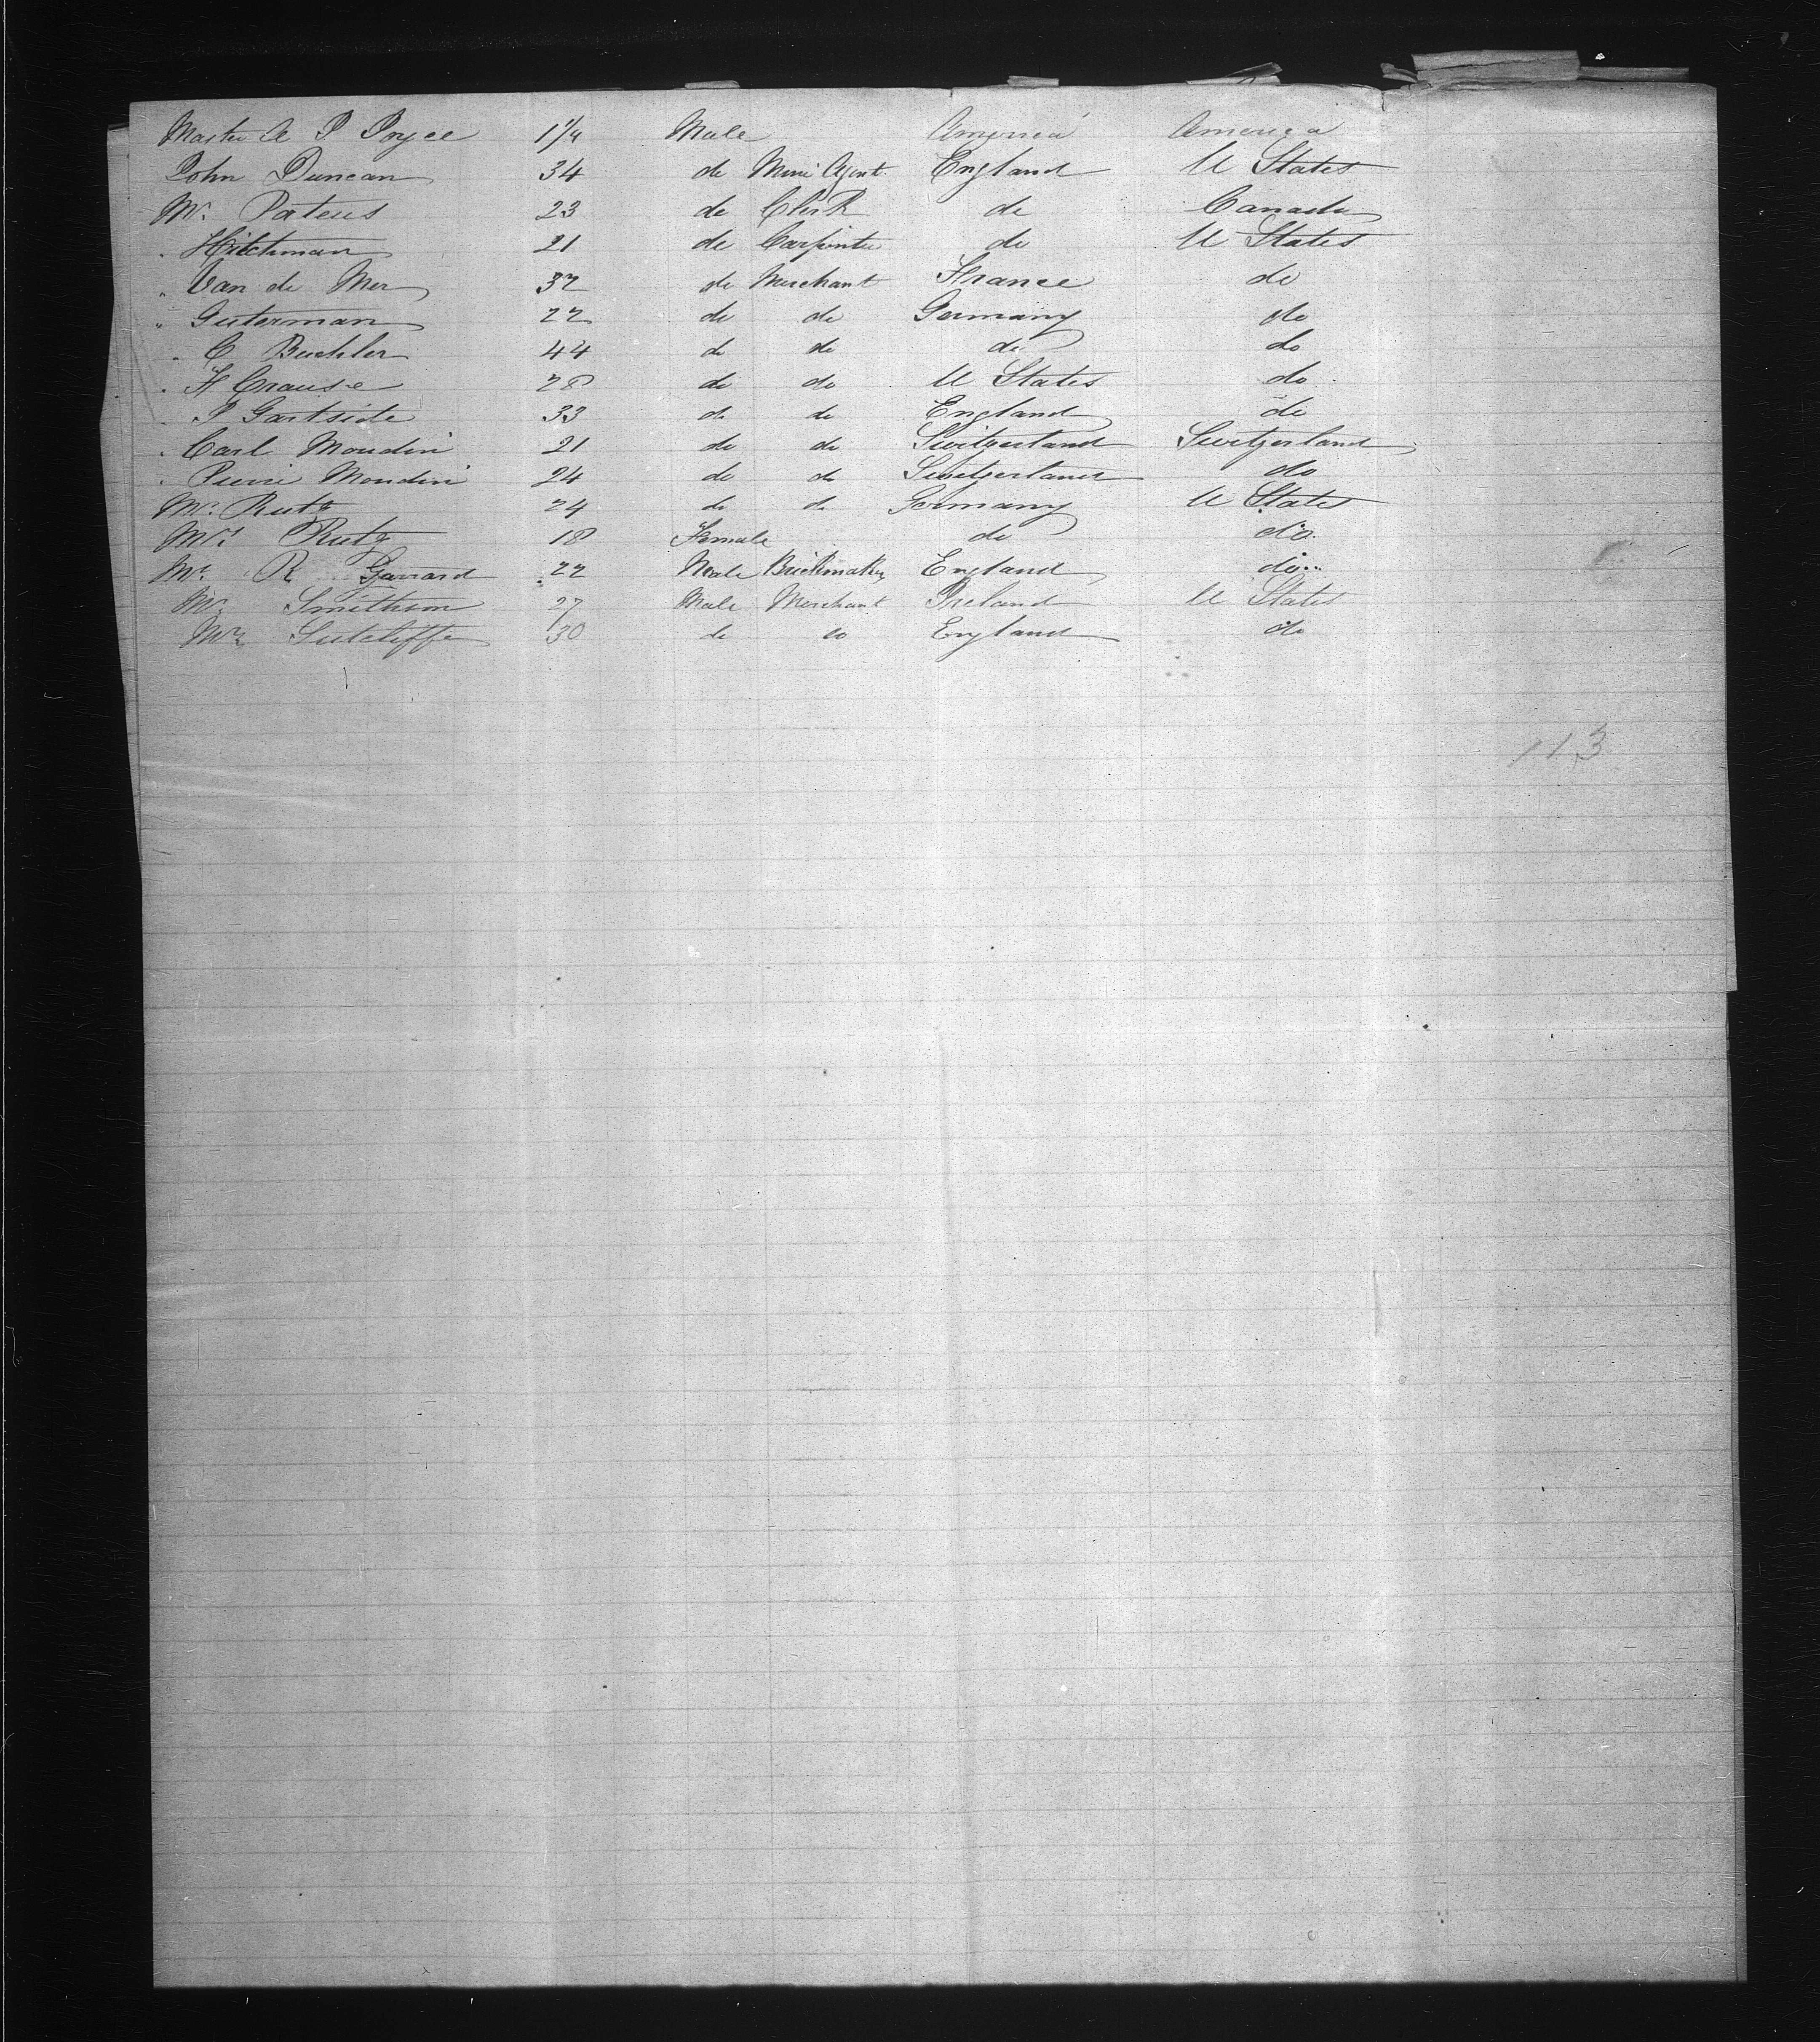 Master A P Joyce 1 1/4 Male America America
John Duncan 34 do Mine Agent England U States
Mr. Pateus 23 do Clerk do Canada
" Hitchman 21 do Carpenter do U States
" Van de Mer 32 do Merchant France do
" Guterman 22 do do Germany do
" C Buehler 44 do do do do
" H Crause 28 do do U States do
" J Gartside 33 do do England do
" Carl Mondini 21 do do Switzerland Switzerland
" Pierri Mondini 24 do do Switzerland do
Mr. Rutz 24 do do Germany U States
Mrs Rutz 18 Female do do
Mr. R Garrard 22 Male Brickmaker England do
Mr. Smithson 27 Male Merchant Ireland U States
Mr. Sutcliffe 30 do do England do
113